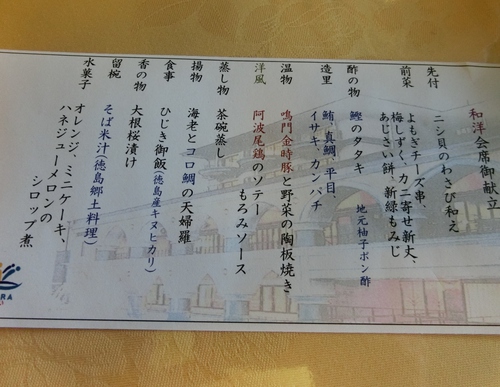 和洋会席御献立
先付
ニシ貝のわさび和え
前菜
よもぎチーズ串、
梅しずく、カニ寄せ新丈、
あじさい餅、新緑もみじ
酢の物
鰹のタタキ 地元柚子ポン酢
造里
鮪、真鯛、平目、
イサキ、カンパチ
温物
鳴門金時豚と野菜の陶板焼き
洋風
阿波尾鶏のソテー
もろみソース
蒸し物
茶碗蒸し
揚物
海老とコロ鯛の天婦羅
食事
ひじき御飯(徳島産キヌヒカリ)
香の物
大根桜漬け
留椀
そば米汁(徳島郷土料理)
水菓子
オレンジ、ミニケーキ、
ハネジューメロンの
シロップ煮